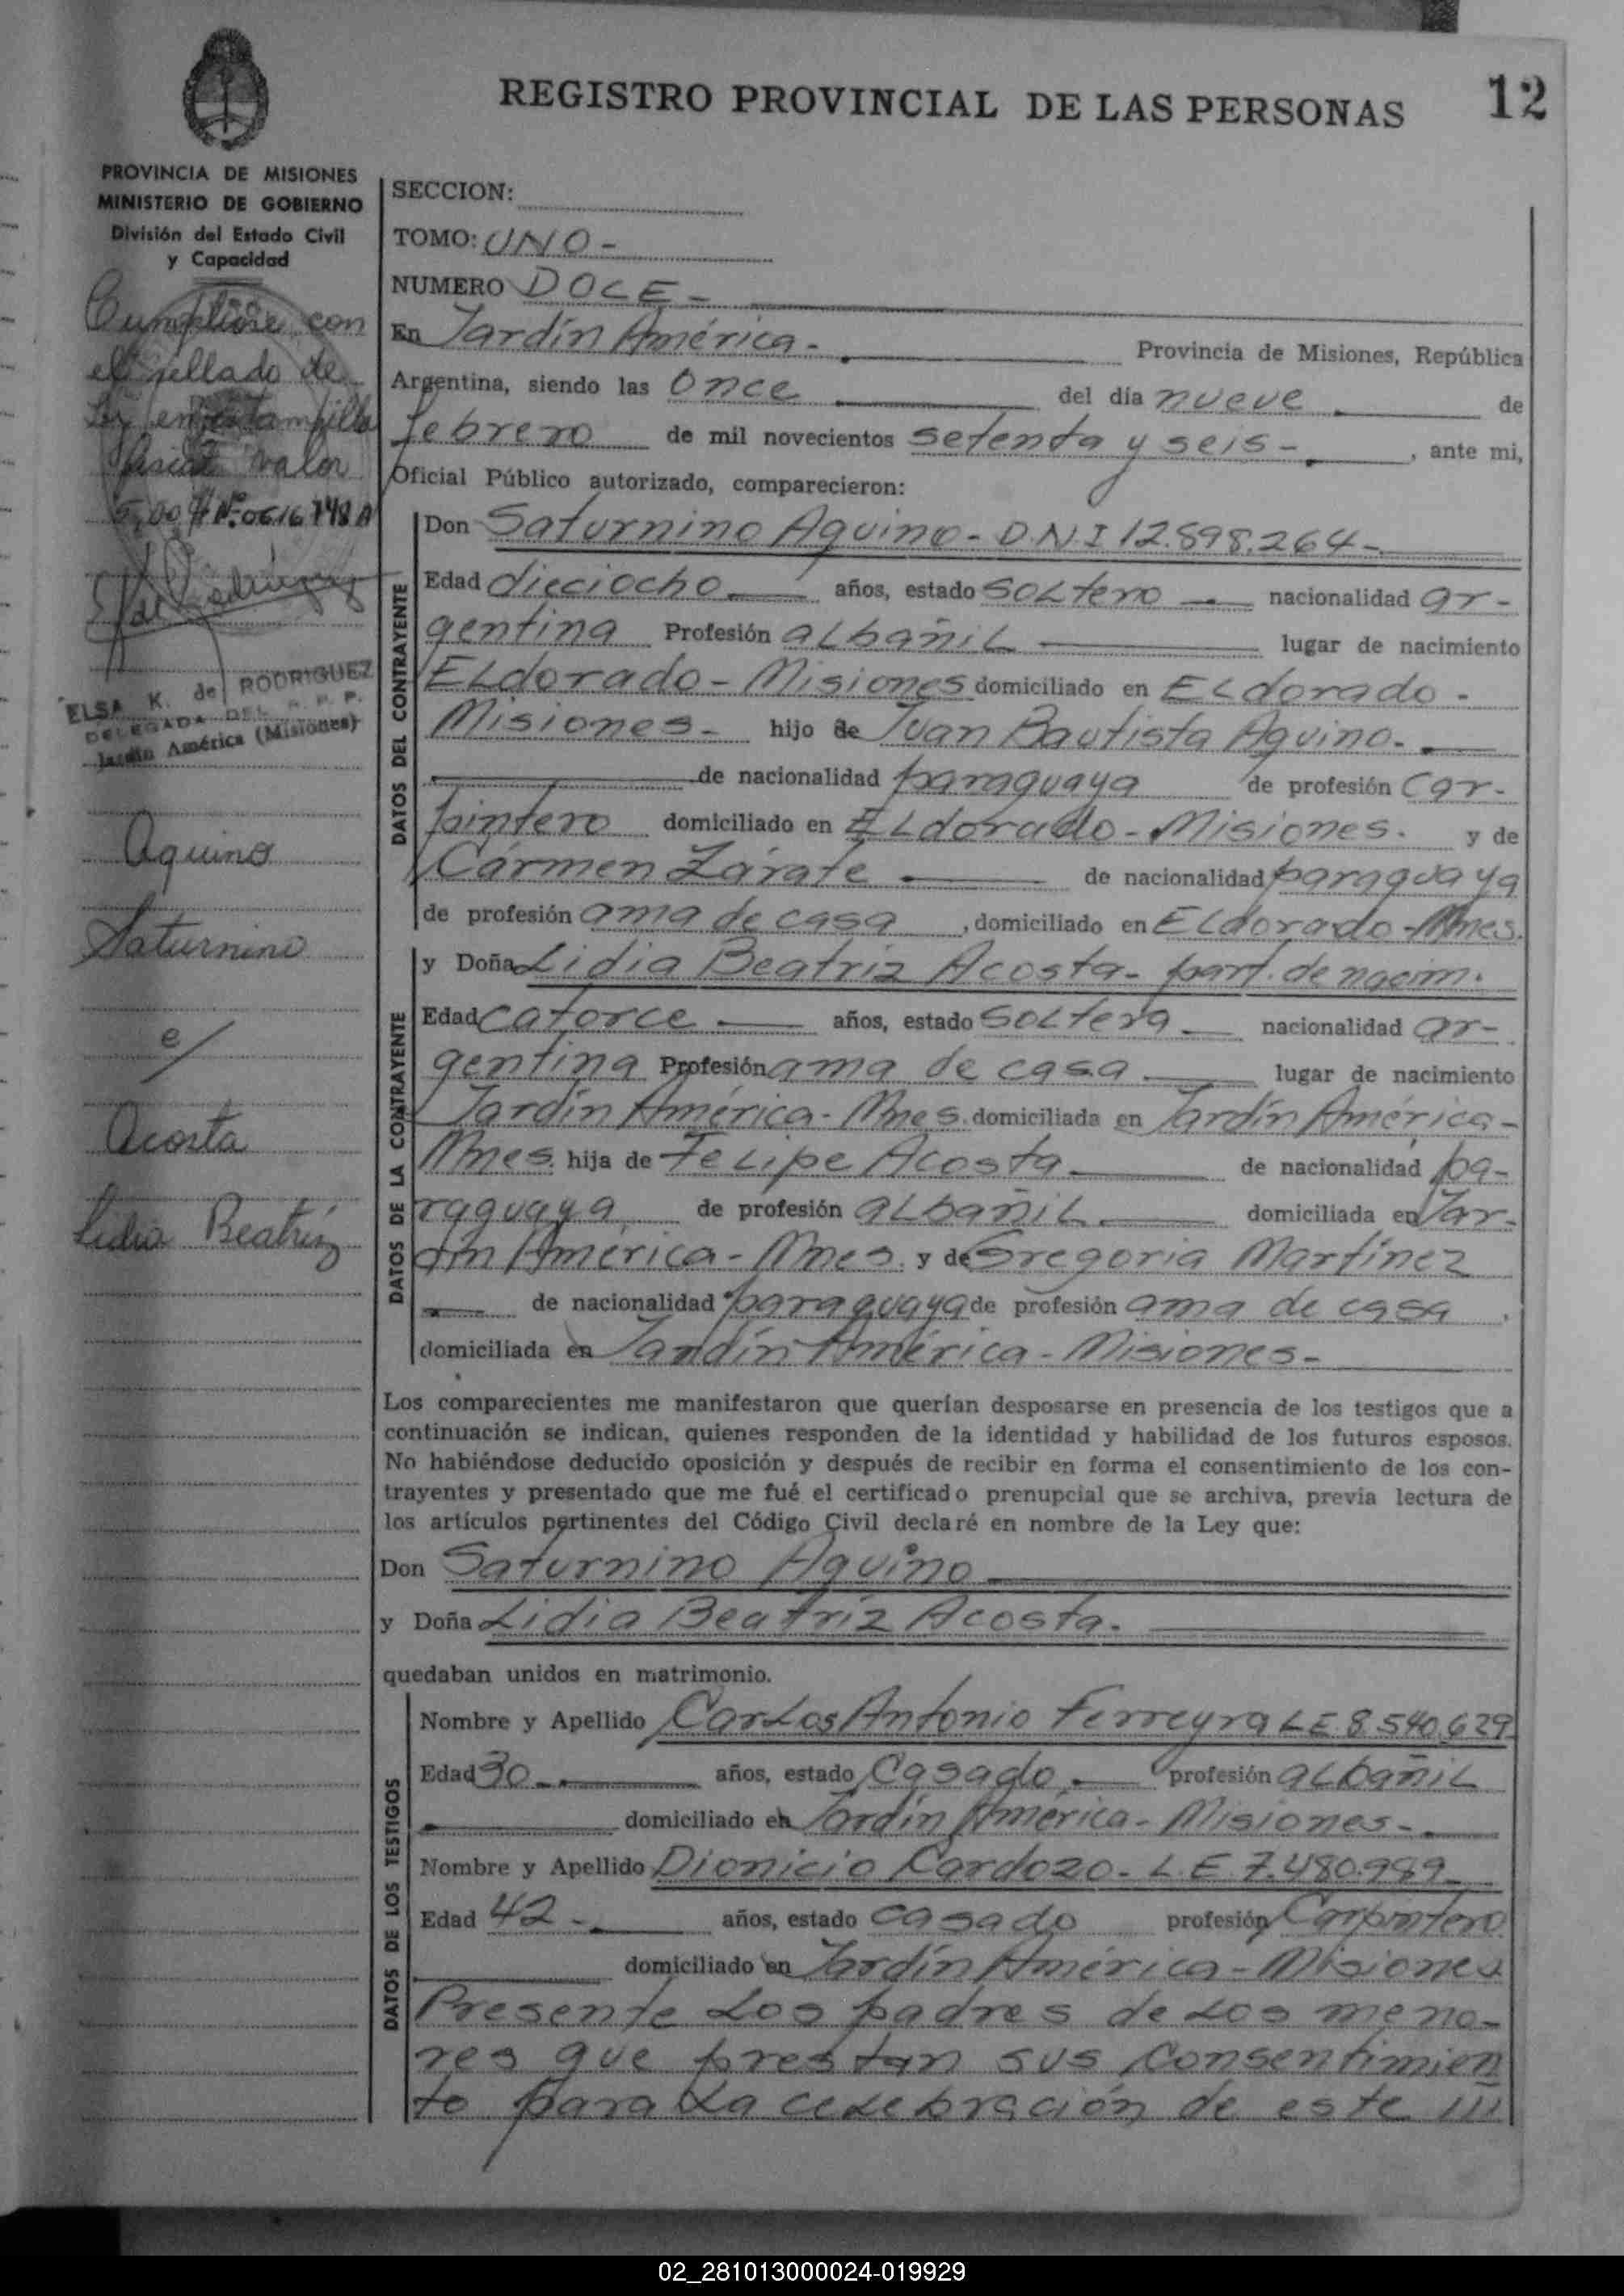 REGISTRO PROVINCIAL DE LAS PERSONAS
12
PROVINCIA DE MISIONES
MINISTERIO DE GOBIERNO
División del Estado Civil
y Capacidad
Cumpliose con
el sellado de
Ley en estampilla
fiscal valor
5,00 $ Nº 0616748 A
ELSA K. de RODRIGUEZ
DELEGADA DEL R. P. P.
Jardín América (Misiones)
Aquino
Saturnino
e/
Acosta
Lidia Beatríz
SECCION:
TOMO: UNO-
NUMERO DOCE-
En Jardín América- Provincia de Misiones, República
Argentina, siendo las once del día nueve de
febrero de mil novecientos setenta y seis- , ante mi,
Oficial Público autorizado, comparecieron:
DATOS DEL CONTRAYENTE
Don Saturnino Aquino- D.N.I 12.898.264-
Edad dieciocho años, estado soltero nacionalidad ar-
gentina Profesión albañil lugar de nacimiento
Eldorado- Misiones domiciliado en Eldorado-
Misiones- hijo de Juan Bautista Aquino-
de nacionalidad paraguaya de profesión car-
pintero domiciliado en Eldorado- Misiones. y de
Cármen Zárate de nacionalidad paraguaya
de profesión ama de casa , domiciliado en Eldorado-Mnes.
DATOS DE LA CONTRAYENTE
y Doña Lidia Beatriz Acosta- part. de nacim.
Edad catorce años, estado soltera nacionalidad ar-
gentina Profesión ama de casa lugar de nacimiento
Jardín América- Mnes. domiciliada en Jardín América-
Mnes. hija de Felipe Acosta de nacionalidad pa-
raguaya de profesión albañil domiciliada en Jar-
dín América- Mnes. y de Gregoria Martínez
de nacionalidad paraguaya de profesión ama de casa ,
domiciliada en Jardín América- Misiones-
Los comparecientes me manifestaron que querían desposarse en presencia de los testigos que a
continuación se indican, quienes responden de la identidad y habilidad de los futuros esposos.
No habiéndose deducido oposición y después de recibir en forma el consentimiento de los con-
trayentes y presentado que me fué el certificado prenupcial que se archiva, previa lectura de
los artículos pertinentes del Código Civil declaré en nombre de la Ley que:
Don Saturnino Aquino
y Doña Lidia Beatríz Acosta.
quedaban unidos en matrimonio.
DATOS DE LOS TESTIGOS
Nombre y Apellido Carlos Antonio Ferreyra L E 8.540.629
Edad 30- años, estado casado profesión albañil
domiciliado en Jardín América- Misiones-
Nombre y Apellido Dionicio Cardozo- L. E 7.480.989
Edad 42- años, estado casado profesión Carpintero
domiciliado en Jardín América- Misiones
Presente los padres de los meno-
res que prestan sus consentimien
to para la celebración de este ///
02_281013000024-019929